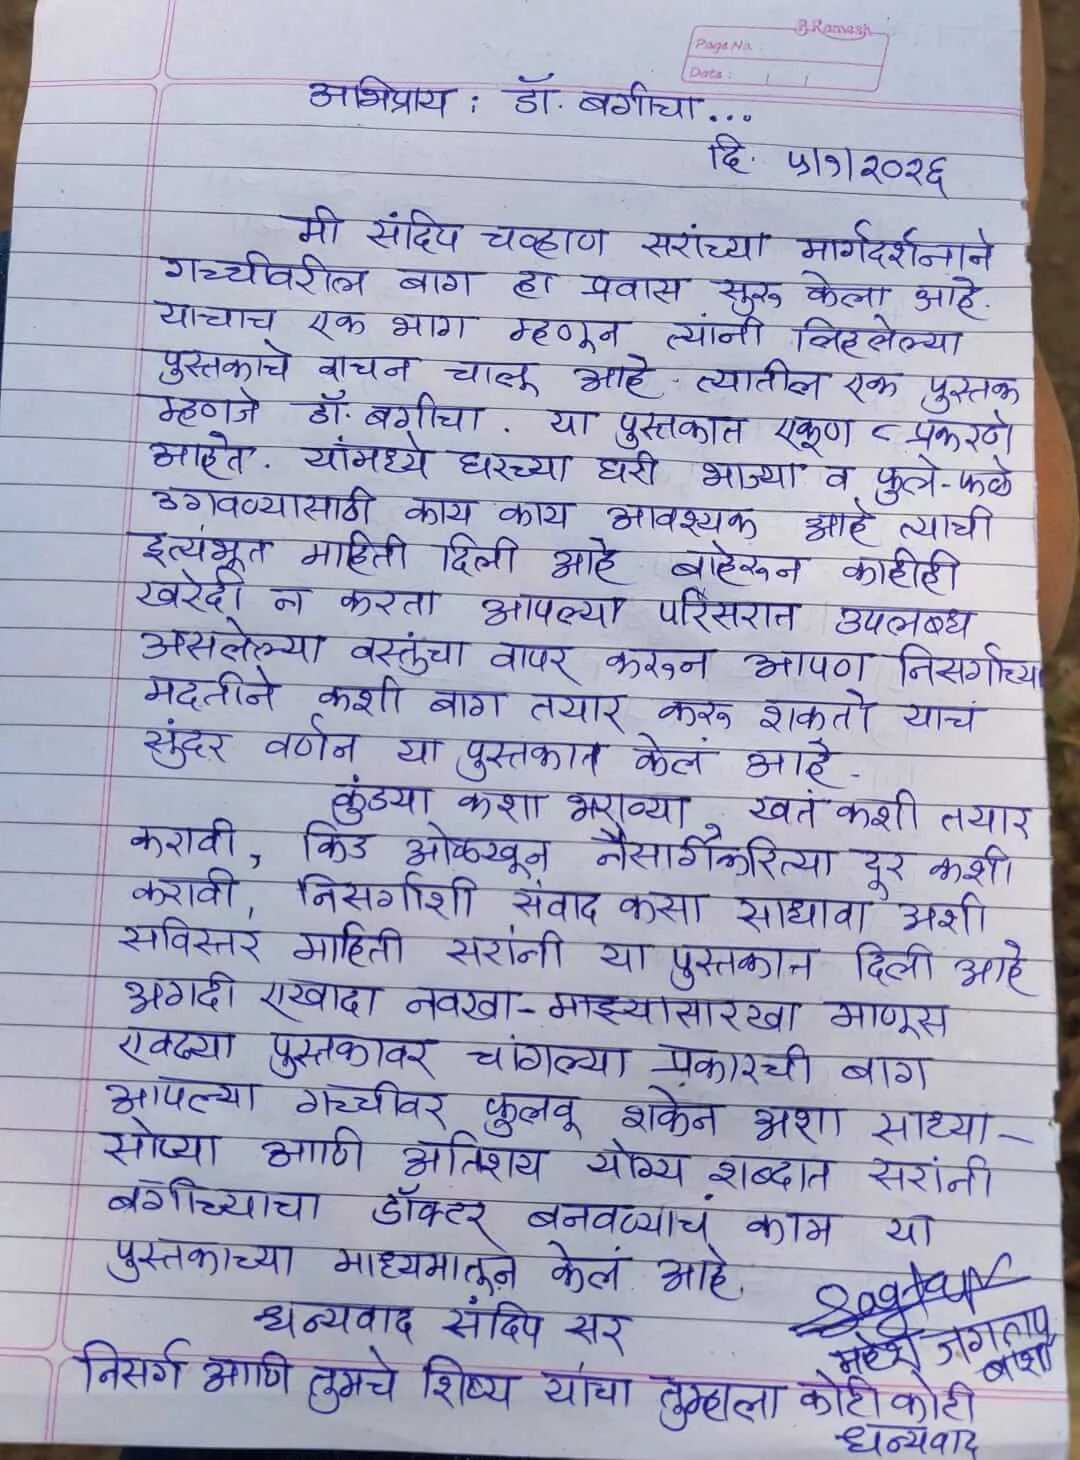 B.Ramesh
Page No :
Date :
अभिप्राय : डॉ. बगीचा...
दि. ५/१/२०२६
मी संदिप चव्हाण सरांच्या मार्गदर्शनाने
गच्चीवरील बाग हा प्रवास सुरू केला आहे.
याचाच एक भाग म्हणून त्यांनी लिहलेल्या
पुस्तकाचे वाचन चालू आहे. त्यातील एक पुस्तक
म्हणजे डॉ. बगीचा. या पुस्तकात एकूण ८ प्रकरणे
आहेत. यांमध्ये घरच्या घरी भाज्या व फुले-फळे
उगवण्यासाठी काय काय आवश्यक आहे त्याची
इत्यंभूत माहिती दिली आहे. बाहेरून काहीही
खरेदी न करता आपल्या परिसरात उपलब्ध
असलेल्या वस्तुंचा वापर करून आपण निसर्गाच्या
मदतीने कशी बाग तयार करू शकतो याचं
सुंदर वर्णन या पुस्तकात केलं आहे.
कुंडया कशा भराव्या, खतं कशी तयार
करावी, किड ओळखून नैसर्गिकरित्या दूर कशी
करावी, निसर्गाशी संवाद कसा साधावा अशी
सविस्तर माहिती सरांनी या पुस्तकात दिली आहे
अगदी एखादा नवखा-माझ्यासारखा माणूस
एवढ्या पुस्तकावर चांगल्या प्रकारची बाग
आपल्या गच्चीवर फुलवू शकेन अशा साध्या-
सोप्या आणि अतिशय योग्य शब्दात सरांनी
बगीच्याचा डॉक्टर बनवण्याचं काम या
पुस्तकाच्या माध्यमातून केलं आहे.
धन्यवाद संदिप सर
महेश जगताप
बार्शी
निसर्ग आणि तुमचे शिष्य यांचा तुम्हाला कोटी कोटी
धन्यवाद